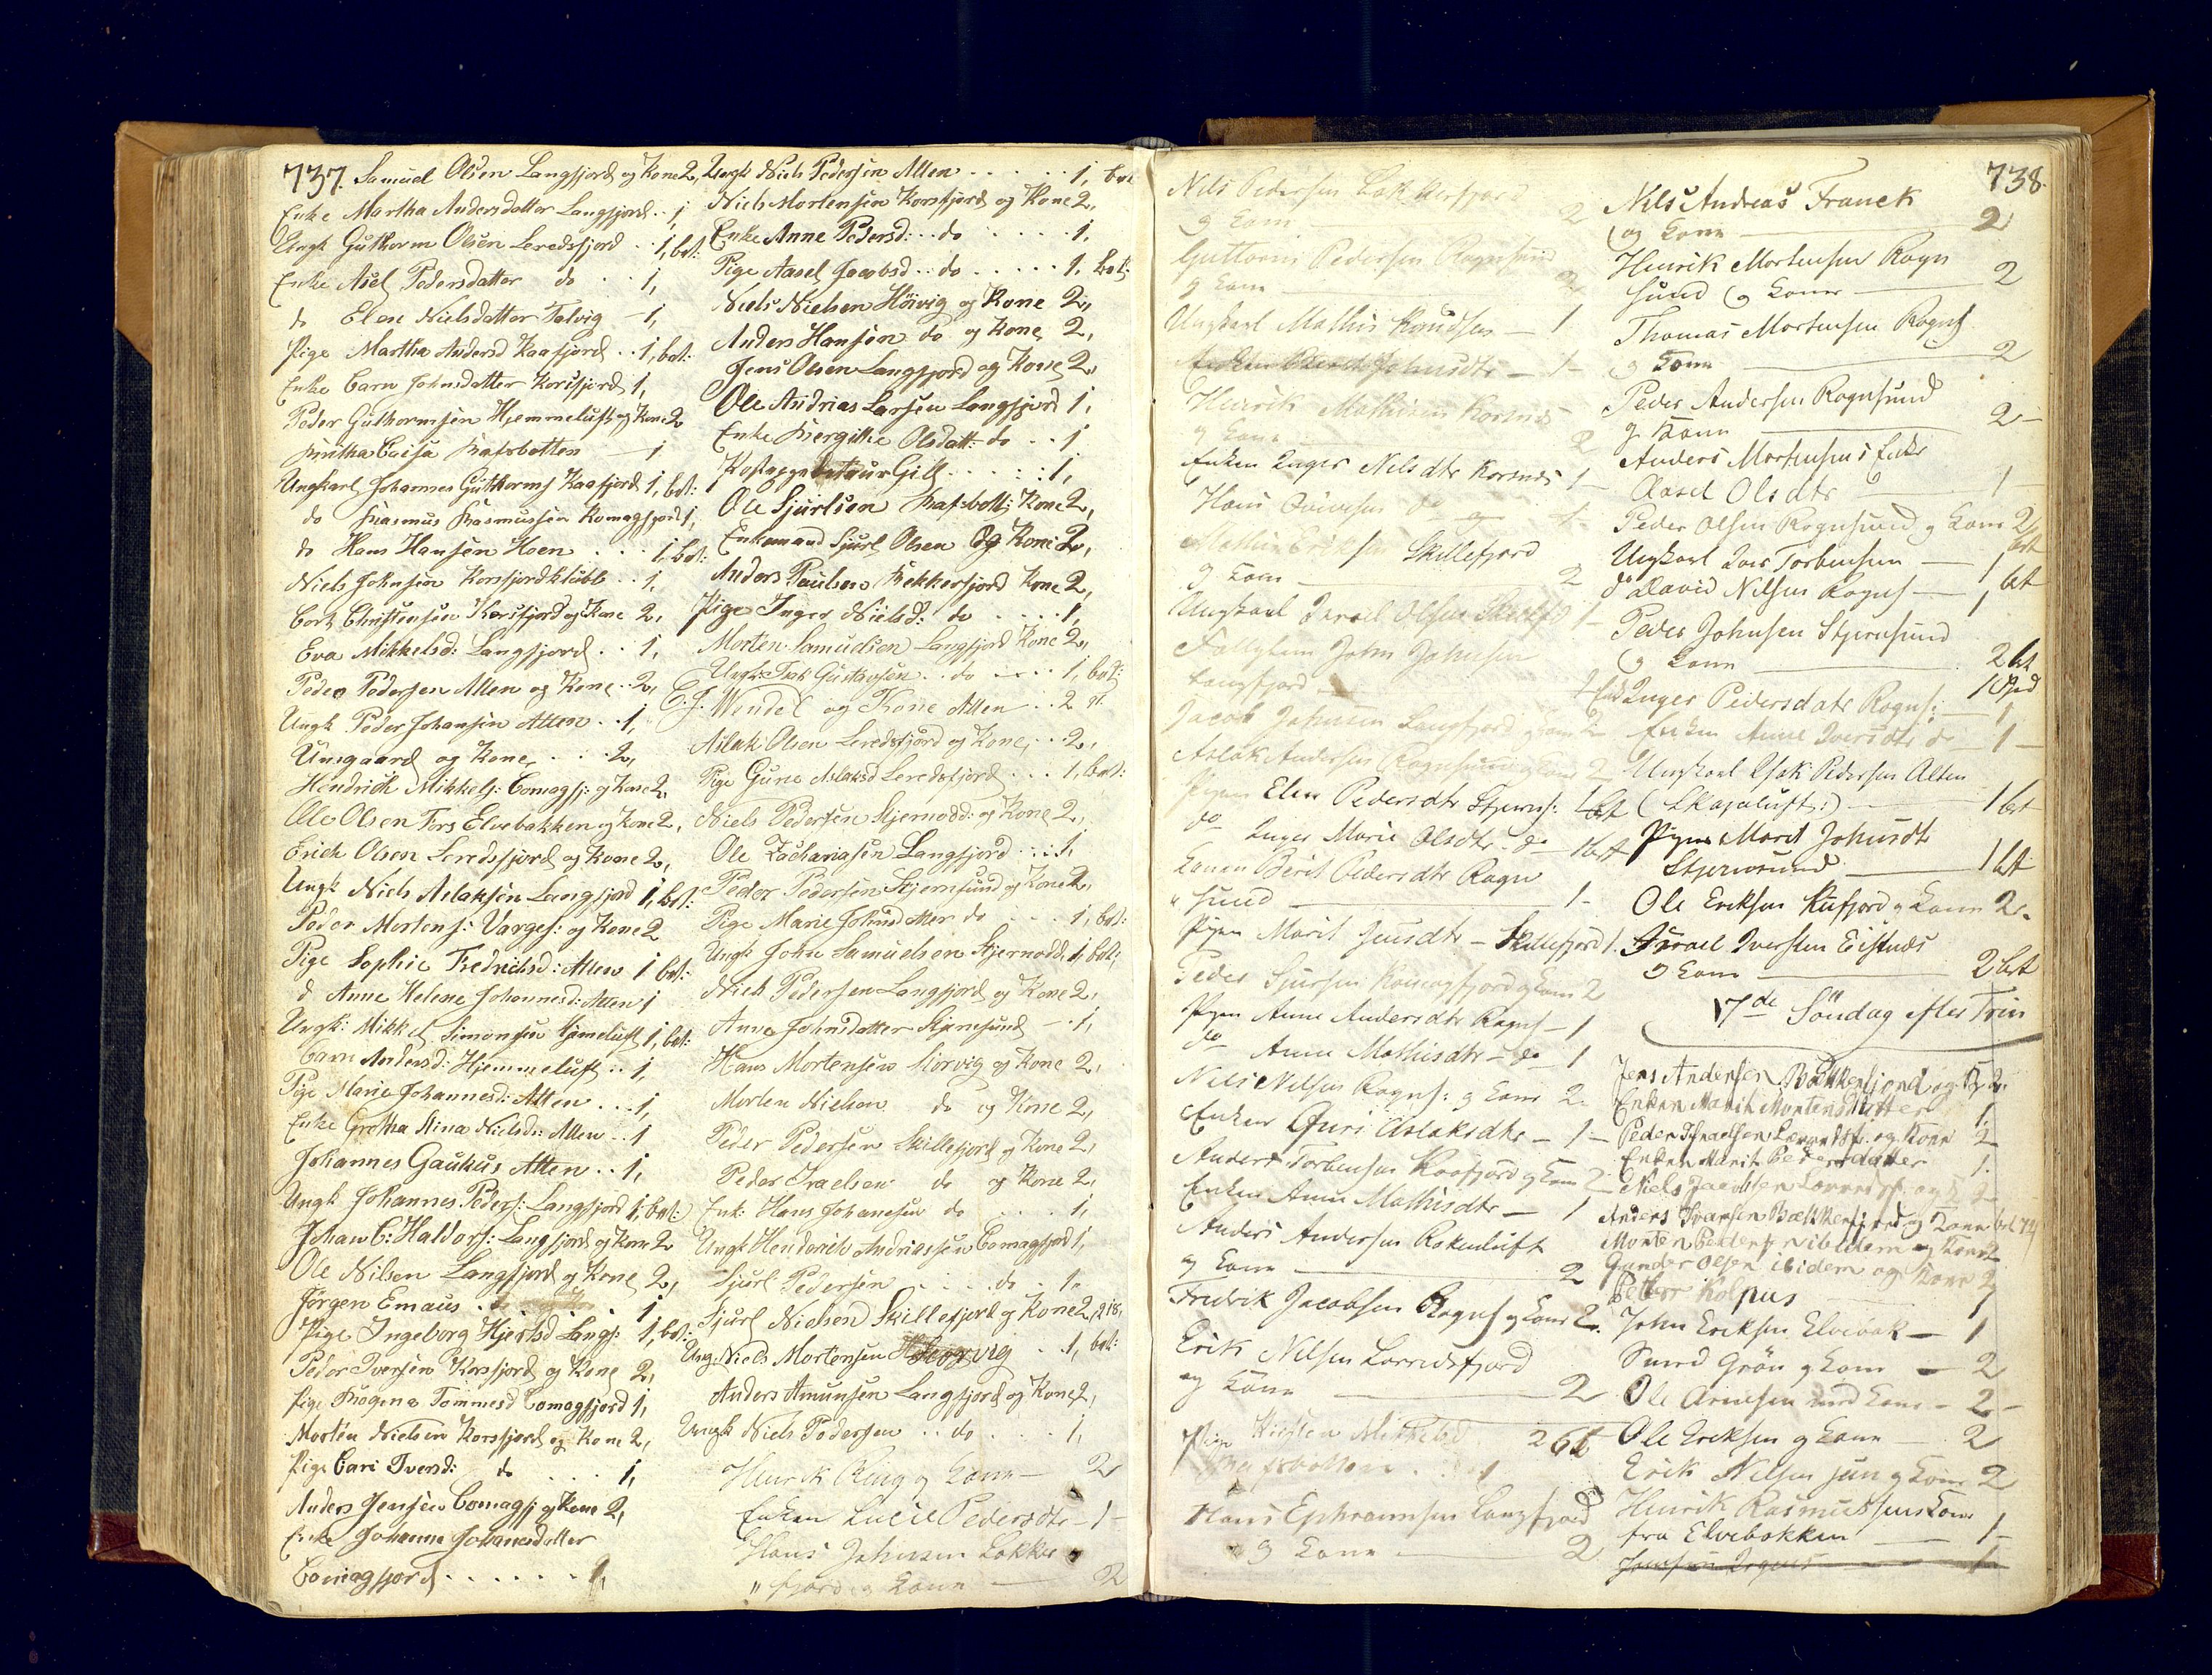 737. Samuel Olsen Langfjord og Kone 2,
Enke Martha Andersdatter Langfjord . . 1
Ungk Guthorm Olsen Leredsfjord . . 1, bet:
Enke Asel Pedersdatter do . 1,
do Elen Nielsdatter Talvig — 1,
Pige Martha Andersd Kaafjord . . 1, bet:
Enke Carn Johnsdatter Korsfjord 1,
Peder Guthormsen Hjemmeluft og Kone 2
Caisa Rafsbotten — 1
Ungkarl Johannes Guthorms Kaafjord 1, bet:
do Rasmus Rasmussen Komagfjord 1,
do Hans Hansen Koen . . . 1, bet:
Niels Johnsen Korsfjordklubb . . 1,
Christensen Korsfjord og Kone 2,
Eva Mikkelsd: Langfjord . . 1,
Peder Pedersen Alten og Kone . . 2,
Ungk Peder Johansen Alten . . 1,
Ungaard og Kone . . 2,
Hendrich Mikkels: Comagfj: og Kone 2,
Ole Olsen Fors Elvebakken og Kone 2,
Erich Olsen Leredsfjord og Kone 2,
Ungk Niels Aslaksen Langfjord 1, bet:
Peder Mortens: Vargs: og Kone 2
Pige Sophie Fredrichsd: Alten 1 bet:
d Anne Helene Johannesd: Alten 1
Ungk: Mikkel Simonsen Hjemeluft 1, bet:
Carn Andersd: Hjemmeluft . . 1,
Pige Marie Johannesd: Alten . . . 1,
Enke Gretha Stina Nielsd: Alten . . 1
Johannes Gaukus Alten . . 1,
Ungk Johannes Peders: Langfjord 1, bet:
Johan C: Haldors: Langfjord og Kone 2
Ole Nilsen Langfjord og Kone 2,
Jørgen Emaus . . . . 1
Pige Ingeborg Hjertsd Langf: 1, bet:
Peder Iversen Korsfjord og Kone 2,
Pige Ragna Tommesd Comagfjord 1,
Morten Nielsen Korsfjord og Kone 2,
Pige Cari Iversd: do . . . . 1,
Anders Jensen Comagfj og Kone 2,
Enke Johanna Johanesdatter
Comagfjord . . . . . . 1,
Ungk Niels Pedersen Alten . . . . . 1, bet
Niels Mortensen Korsfjord og Kone 2,
Enke Anne Pedersd: . . do . . . . . 1,
Pige Aasel Jacobsd . . do . . . . . 1, bet:
Niels Nielsen Höivig og Kone 2,
Anders Hansen do og Kone 2,
Jens Olsen Langfjord og Kone 2,
Ole Andrias Larsen Langfjord 1,
Enke Bergithe Olsdatt: do . . 1
Gill . . . . : 1,
Ole Sjurlsen Rafsbott: Kone 2,
Enkemand Sjurl Olsen og Kone 2,
Anders Paulsen Bekkerfjord Kone 2,
Pige Inger Nielsd: do . . . . 1,
Morten Samuelsen Langfjord Kone 2,
Ungk: Gustavsen . . do . . . . 1, bet:
C. J. Wendel og Kone Alten . . 2
Aslak Olsen Leredsfjord og Kone . . 2,
Pige Gune Aslaksd Leredsfjord . . . 1, bet:
Niels Pedersen Stjernodd: og Kone 2,
Ole Zachariasen Langfjord . . : 1,
Peder Pedersen Stjernsund og Kone 2,
Pige Marie Johnsdatter do . . . 1, bet:
Ungk John Samuelsen Stjernodd, 1, bet:
Niels Pedersen Langfjord og Kone 2,
Anne Johnsdatter Stjernsund — . 1,
Hans Mortensen Storvig og Kone 2,
Morten Nielsen do og Kone 2,
Peder Pedersen Skillefjord og Kone 2,
Peder Israelsen do og Kone 2,
Enk: Hans Johanesen do . . . 1,
Ungk Hendrich Andriassen Comagfjord 1,
Sjurl Pedersen . . . . do . 1.
Sjurl Nielsen Skillefjord og Kone 2, 218,
Ung: Niels Mortensen . . 1, bet:
Anders Amunsen Langfjord og Kone 2,
Ungk Niels Pedersen . . do . . . 1,
Henrik Ring og Kone — 2
Enken Lucie Pedersdtr — 1 —
Hans Johnsen Lokker
" fjord og Kone — 2
Nils Pedersen Lokkerfjord
og Kone 2
Guttorm Pedersen Rognsund
og Kone — 2
Ungkarl Mathis Knudsen — 1
Enken Johnsdtr — 1 —
Henrik Mathisen Korsnes
og Kone — 2
Enken Inger Nilsdtr Korsnes 1 —
Hans do
Eriksen Skillefjord
og Kone — 2
Ungkarl Israel Olsen 1 —
John Johnsen
Langfjord —
Jacob Johnsen Langfjord og Kone 2
Aslak Andersen Rognsund og Kone 2
Pigen Elen Pedersdtr Stjerns: 1 bet
do Inger Marie Olsdtr — do — 1 bet
Konen Berit Pedersdtr Rogn
" sund — 1 —
Pigen Marit Jensdtr — Skillefjord 1.
Peder Sjursen Komagfjord og Kone 2
Pigen Anne Andersdtr Rogns — 1
do Anne Mathisdtr — do — 1
Nils Nilsen Rogns: og Kone 2.
Enken Guri Aslaksdtr — 1 —
Anders Torbensen Kaafjord og Kone 2
Enken Anne Mathisdtr — 1
Anders Andersen Rakkeluft
og Kone — 2
Fredrik Jacobsen Rogns og Kone 2.
Erik Nilsen Lerredsfjord
og Kone — 2
Pige Mikkelsd 261
Rafsbotten . . 1
Hans Ephraimsen Langfjord
og Kone — 2
738.
Nils Andreas Franck
og Kone — 2
Henrik Mortensen Rogn
sund og Kone — 2
Thomas Mortensen Rogns
og Kone — 2
Peder Andersen Rognsund
og Kone — 2 —
Anders Mortensens Enke
Aasel Olsdtr — 1 —
Peder Olsen Rognsund og Kone 2 bet
Ungkarl Iver Torbensen — 1
do David Nilsen Rogns — 1 bet
Peder Johnsen Stjernsund
og Kone — 2 bet
Inger Pedersdatr Rogns: — 1
Enken Anne Iversdtr do — 1 —
Ungkarl Isak Pedersen Alten
(Skajaluft:) — 1 bet
Pigen Marit Johnsdtr
Stjernsund — 1 bet
Ole Eriksen Rufjord og Kone 2.
Israel Iversen Eistnes
og Kone — 2 bet
17de Söndag efter Trin
Jens Andersen Bækkerfjord og K. 2.
Enken Marit Mortensdatter 1.
Peder Israelsen Lerredsf. og Kone 2
Enken Marit Pedersdatter 1.
Niels Jacobsen Lerredsf. og K 2
Anders Iversen Bækkerfjord og Kone bet
Morten Pedersen ibidem og Kone 2
Gunder Olsen ibidem og Kone 2
Petter Kolpus 1
John Eriksen Elvebak — 1
Smed Grön og Kone — 2
Ole Arnesen med Kone — 2 —
Ole Eriksen og Kone — 2
Erik Nilsen jun og Kone 2
Henrik Rasmussens Kone
fra Elvebakken — 1 —